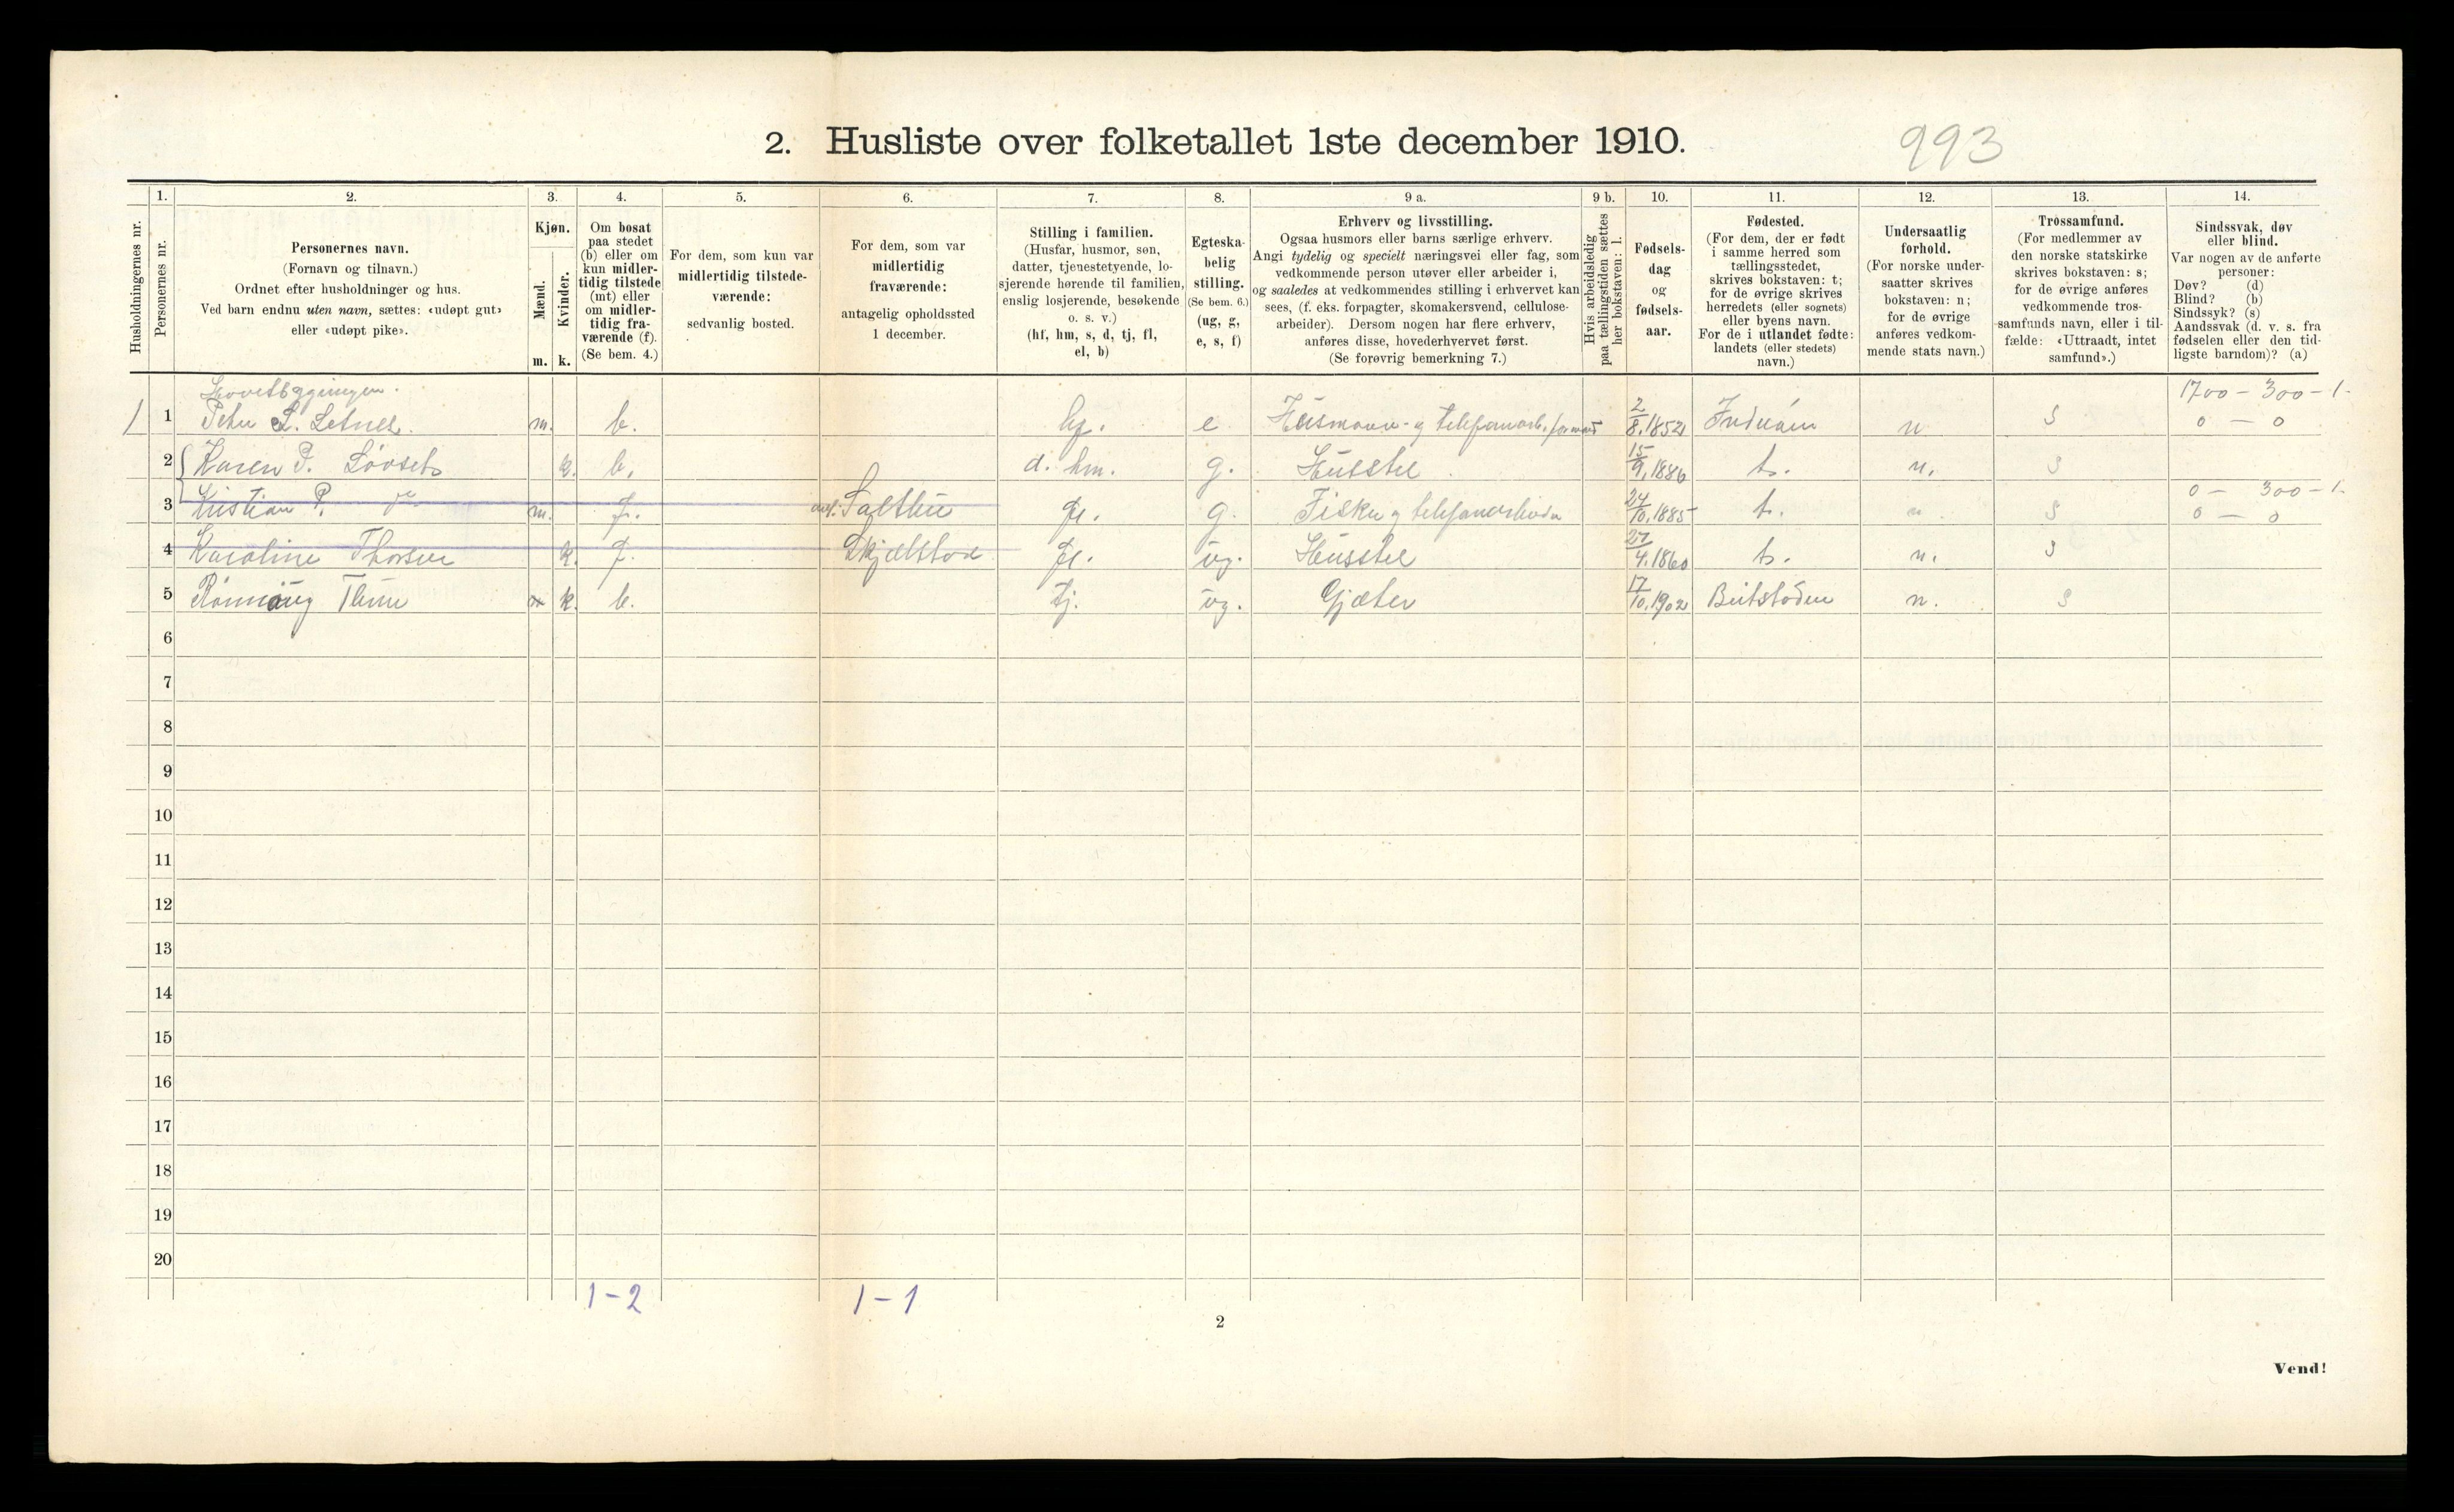 2. Husliste over folketallet 1ste december 1910.
993
1. 2. 3. 4. 5. 6. 7. 8. 9 a. 9 b. 10. 11. 12. 13. 14.
Husholdningernes nr.
Personernes nr.
Personernes navn.
(Fornavn og tilnavn.)
Ordnet efter husholdninger og hus.
Ved barn endnu uten navn, sættes: «udøpt gut»
eller «udøpt pike».
Kjøn.
Mænd.
Kvinder.
m. k.
Om bosat
paa stedet
(b) eller om
kun midler-
tidig tilstede
(mt) eller
om midler-
tidig fra-
værende (f).
(Se bem. 4.)
For dem, som kun var
midlertidig tilstede-
værende:
sedvanlig bosted.
For dem, som var
midlertidig
fraværende:
antagelig opholdssted
1 december.
Stilling i familien.
(Husfar, husmor, søn,
datter, tjenestetyende, lo-
sjerende hørende til familien,
enslig losjerende, besøkende
o. s. v.)
(hf, hm, s, d, tj, fl,
el, b)
Egteska-
belig
stilling.
(Se bem. 6.)
(ug, g,
e, s, f)
Erhverv og livsstilling.
Ogsaa husmors eller barns særlige erhverv.
Angi tydelig og specielt næringsvei eller fag, som
vedkommende person utøver eller arbeider i,
og saaledes at vedkommendes stilling i erhvervet kan
sees, (f. eks. forpagter, skomakersvend, cellulose-
arbeider). Dersom nogen har flere erhverv,
anføres disse, hovederhvervet først.
(Se forøvrig bemerkning 7.)
Hvis arbeidsledig
paa tællingstiden sættes
her bokstaven: l.
Fødsels-
dag
og
fødsels-
aar.
Fødested.
(For dem, der er født
i samme herred som
tællingsstedet,
skrives bokstaven: t;
for de øvrige skrives
herredets (eller sognets)
eller byens navn.
For de i utlandet fødte:
landets (eller stedets)
navn.)
Undersaatlig
forhold.
(For norske under-
saatter skrives
bokstaven: n;
for de øvrige
anføres vedkom-
mende stats navn.)
Trossamfund.
(For medlemmer av
den norske statskirke
skrives bokstaven: s;
for de øvrige anføres
vedkommende tros-
samfunds navn, eller i til-
fælde: «Uttraadt, intet
samfund».)
Sindssvak, døv
eller blind.
Var nogen av de anførte
personer:
Døv? (d)
Blind? (b)
Sindssyk? (s)
Aandssvak (d. v. s. fra
fødselen eller den tid-
ligste barndom)? (a)
Hovedbygningen.
1700 - 300 - 1.
1 1 Peter L. Letnes. m. b. hf. e Husmann- og telefonarb. formand 2/8.1852 Inderøen n s 0 - 0
2 Karen P. Løvseth k. b. d. hm. g. Husstel 15/9.1886 t. n. s
0 - 300 - 1.
3 Kristian P. do m. f. Salthu fl. g. Fisker og telefonarbeider 24/10.1885 t. n s 0 - 0
4 Karoline Thorsen k. f. Skjelstad fl. ug. Husstel 27/4.1860 t. n. s
5 Rønnaug Thun k. b. tj. ug. Gjæter 17/10.1902 Beitstaden n. s
6
7
8
9
10
11
12
13
14
15
16
17
18
19
20
1 - 2 1 - 1
2
Vend!